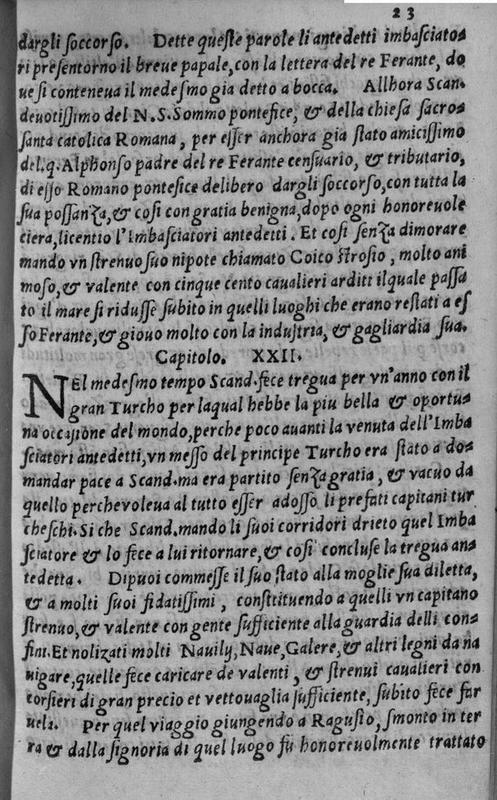 23
dargli soccorso. Dette queste parole li antedetti imbasciato⸗
ri presentorno il breue papale, con la lettera del re Ferante, do
ue si conteneua il medesmo gia detto a bocca. Allhora Scan.
deuotissimo del N.S. Sommo pontefice, & della chiesa sacro⸗
santa catolica Romana, per esser anchora gia stato amicissimo
del.q. Alphonso padre del re Ferante censuario, & tributario,
di esso Romano pontefice delibero dargli soccorso, con tutta la
sua possanza, & cosi con gratia benigna, dopo ogni honoreuole
ciera, licentio l'Imbasciatori antedetti. Et cosi senza dimorare
mando vn strenuo suo nipote chiamato Coico strosio, molto ani
moso, & valente con cinque cento caualieri arditi ilquale passa
to il mare si ridusse subito in quelli luoghi che erano restati a es
so Ferante, & giouo molto con la industria, & gagliardia sua.
Capitolo. XXII.
NEl medesmo tempo Scand. fece tregua per vn'anno con il
gran Turcho per laqual hebbe la piu bella & oportu⸗
na occasione del mondo, perche poco auanti la venuta dell'Imba
sciatori antedetti, vn messo del principe Turcho era stato a do⸗
mandar pace a Scand. ma era partito senza gratia, & vacuo da
quello perche voleua al tutto esser adosso li prefati capitani tur
cheschi. Si che Scand. mando li suoi corridori drieto quel Imba
sciatore & lo fece a lui ritornare, & cosi concluse la tregua an⸗
tedetta. Dipuoi commesse il suo stato alla moglie sua diletta,
& a molti suoi fidatissimi, constituendo a quelli vn capitano
strenuo, & valente con gente sufficiente alla guardia delli con⸗
fini. Et nolizati molti Nauily, Naue, Galere, & altri legni da na
uigare, quelle fece caricare de valenti, & strenui caualieri con
corsieri di gran precio et vettouaglia sufficiente, subito fece far
uela. Per quel viaggio giungendo a Ragusio, smonto in ter
ra & dalla signoria di quel luogo fu honoreuolmente trattato